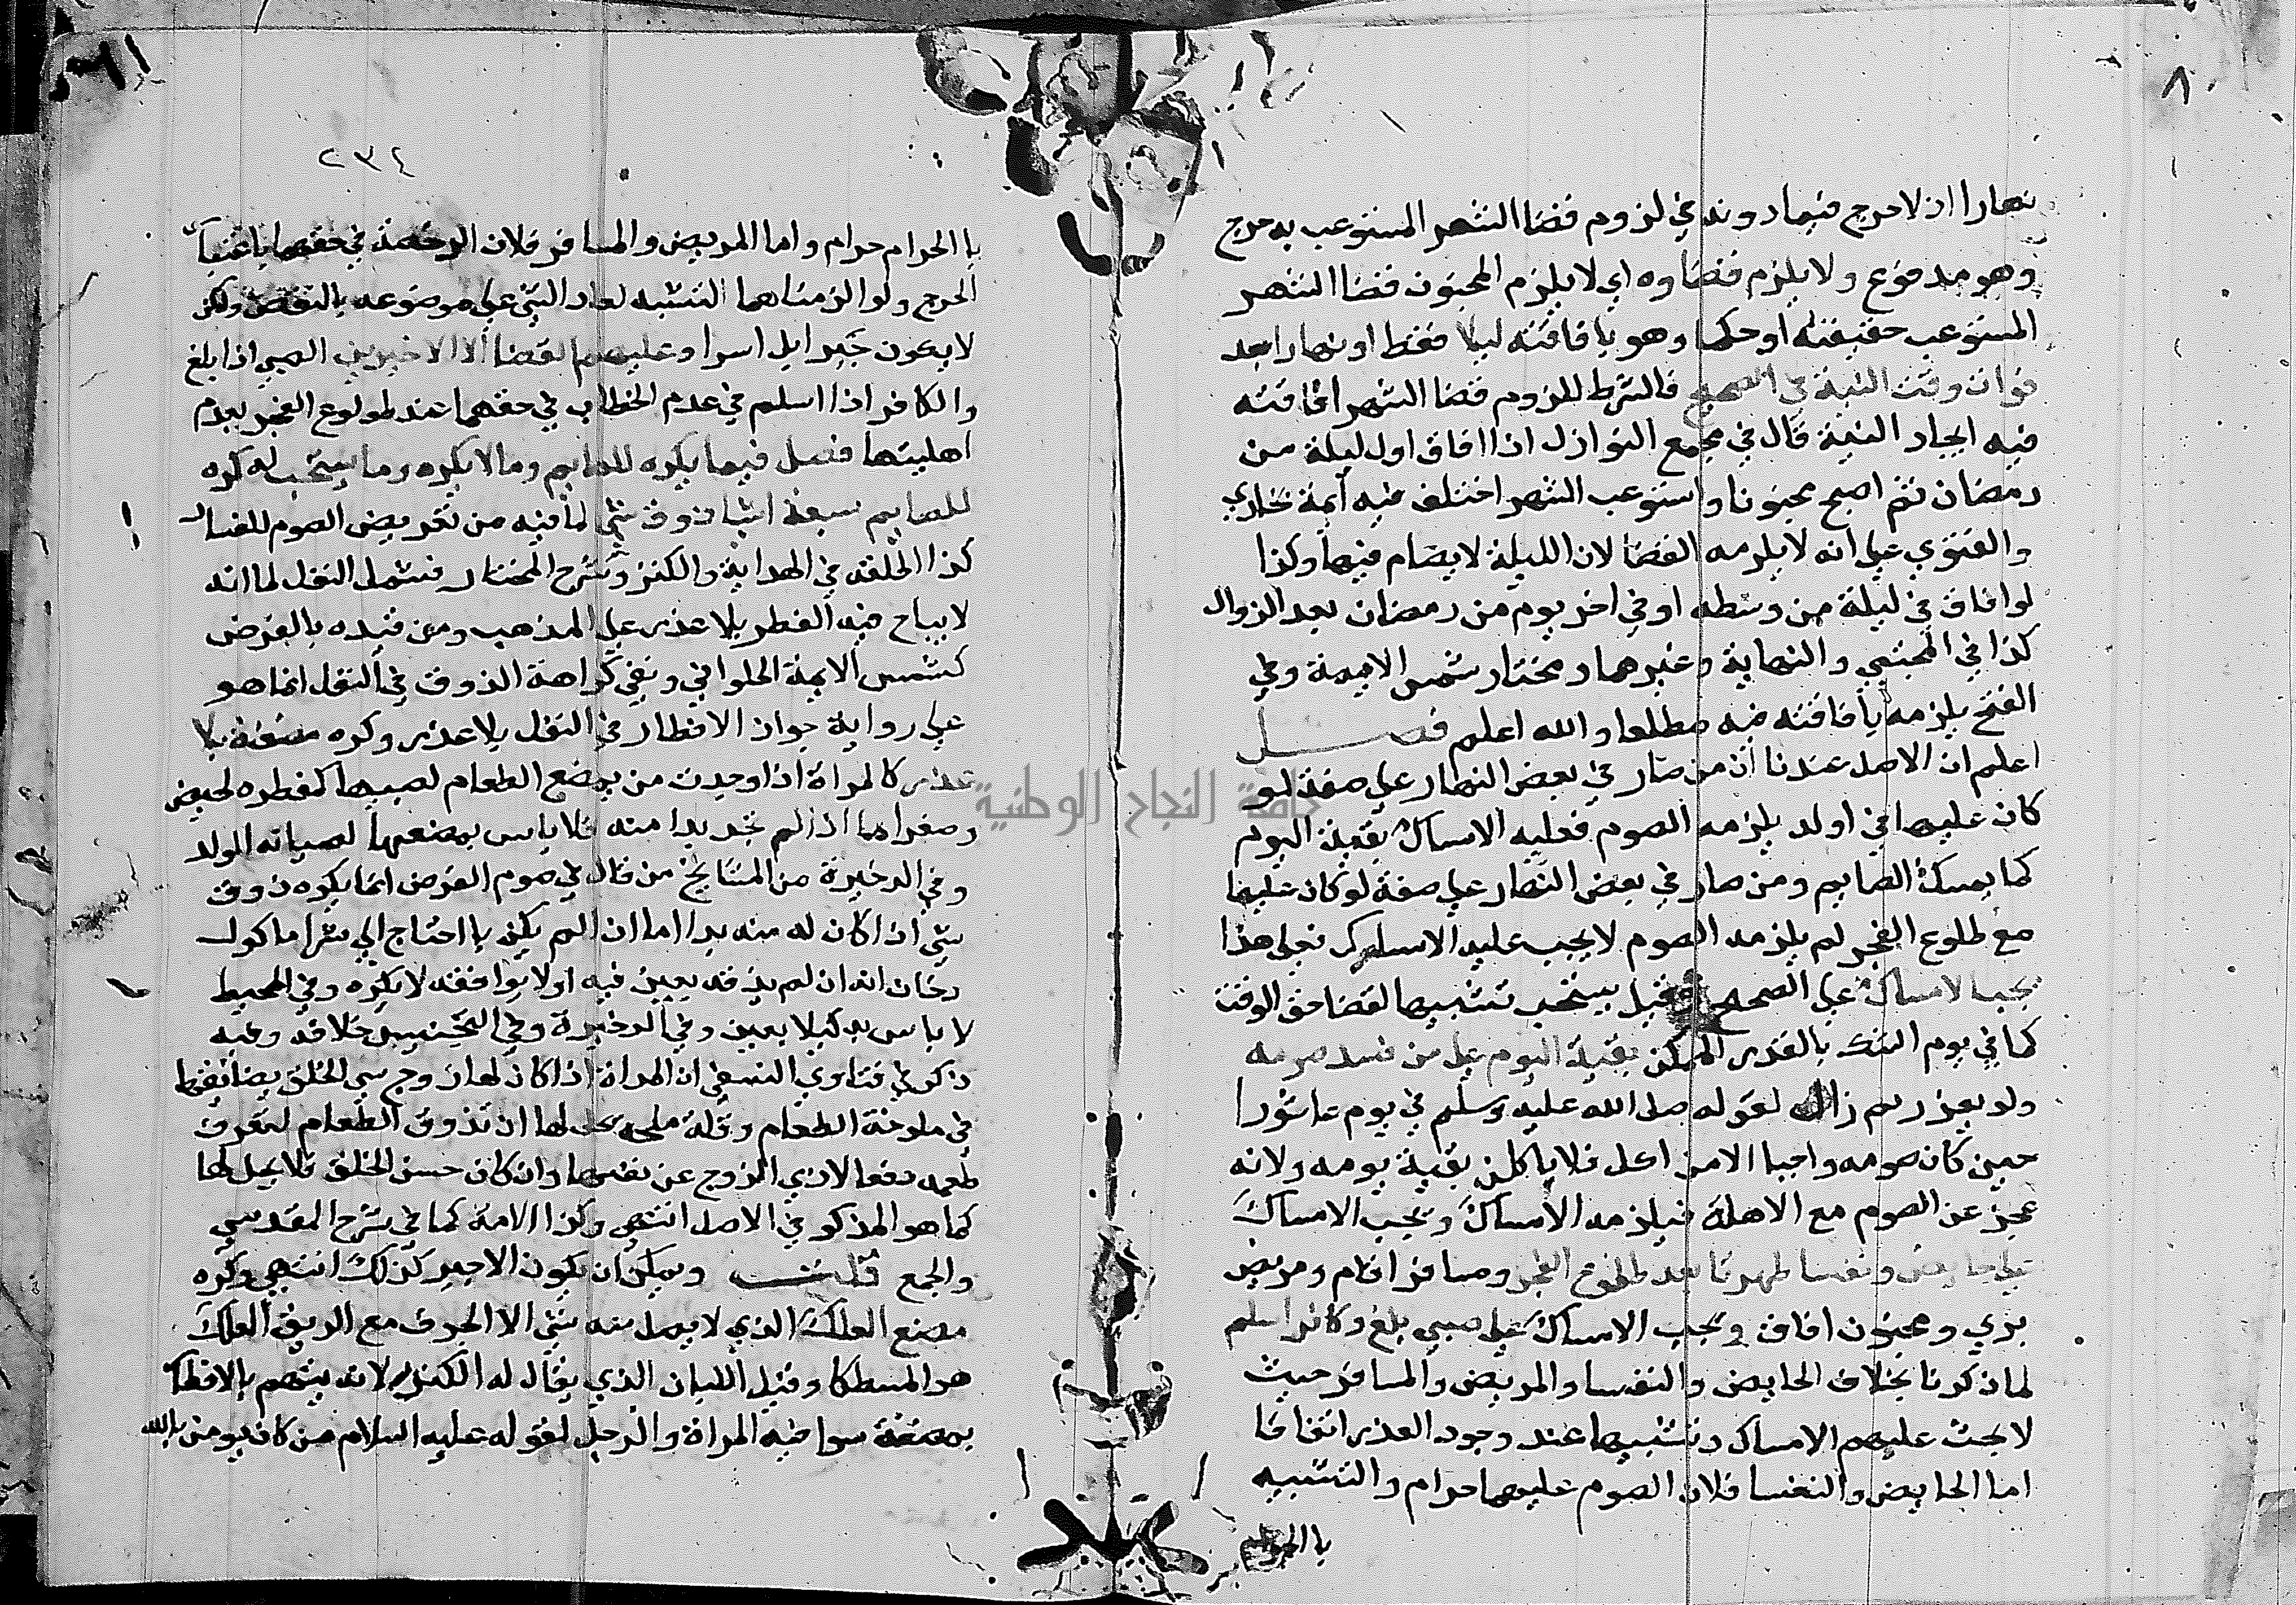 ٨
نهارا اذ لا حرج فيما دونه في لزوم قضا الشهر المستوعب به حرج
وهو مدفوع ولا يلزم قضاوه اي لا يلزم المجنون قضا الشهر
المستوعب حقيقة او حكما وهو بافاقته ليلا فقط او نهارا بعد
فوات وقت النية في الصحيح فالشرط للزوم قضا الشهر افاقته
فيه ايجاد النية قال في مجمع النوازل اذا افاق اول ليلة من
رمضان ثم اصبح مجنونا واستوعب الشهر اختلف فيه ايمة بخاري
والفتوي علي انه لا يلزمه القضا لان الليلة لا يصام فيها وكذا
لو افاق في ليلة من وسطه او في اخر يوم من رمضان بعد الزوال
كذا في المجتبي والنهاية وغيرهما ومختار شمس الايمة وفي
الفتح يلزمه بافاقته فيه مطلقا والله اعلم فصل
اعلم ان الاصل عندنا ان من صار في بعض النهار علي صفة لو
كان عليها في اوله يلزمه الصوم فعليه الامساك بقية اليوم
كما يمسك الصايم ومن صار في بعض النهار علي صفة لو كان عليها
مع طلوع الفجر لم يلزمه الصوم لا يجب عليه الامساك فعلي هذا
يجب الامساك علي الصحيح وقيل يستحب تشبيها لقضا حق الوقت
كما في يوم الشك بالقدر الممكن بقية اليوم علي من فسد صومه
ولو بعذر ثم زال لقوله صلي الله عليه وسلم في يوم عاشورا
حين كان صومه واجبا الا من اكل فلا ياكلن بقية يومه ولانه
عجز عن الصوم مع الاهلة فيلزمه الامساك ويجب الامساك
علي حايض ونفسا طهرتا بعد طلوع الفجر ومسافر اقام ومريض
بري ومجنون افاق ويجب الامساك علي صبي بلغ وكافر اسلم
لما ذكرنا بخلاف الحايض والنفسا والمريض والمسافر حيث
لا يجب عليهم الامساك وتشبيها عند وجود العذر اتفاقا
اما الحايض والنفسا فلان الصوم عليهما حرام والتشبيه
بالحرام
٢٣٤
با الحرام حرام واما المريض والمسافر فلان الرخصة في حقهما باعتبار
الحرج ولو الزمناهما التشبه لعاد الشي علي موضوعه بالنقض ولكن
لا ياكلون جهرا بل سرا وعليهم القضا الا الاخيرين الصبي اذا بلغ
والكافر اذا اسلم في عدم الخطاب في حقهما عند طلوع الفجر لعدم
اهليتهما فصل فيما يكره للصايم وما لا يكره وما يستحب له كره
للصايم سبعة اشيا ذوق شي لما فيه من تعريض الصوم للفساد
كذا اطلقه في الهداية والكنز وشرح المختار فشمل النفل لما انه
لا يباح فيه الفطر بلا عذر علي المذهب ومن قيده بالفرض
كشمس الايمة الحلواني ونفي كراهة الذوق في النفل انما هو
علي رواية جواز الافطار في النفل بلا عذر وكره مضغه بلا
عذر كالمراة اذا وجدت من يمضع الطعام لصبيها كمفطره لحيض
وصغر اما اذا لم تجد بدا منه فلا باس بمضغها لصيانه الولد
وفي الذخيرة من المشايخ من قال في صوم الفرض انما يكره ذوق
شي اذا كان له منه بد اما ان لم يكن با احتاج الي شرا ماكول
وخاف انه ان لم يذقه يغبن فيه او لا يوافقه لا يكره وفي المحيط
لا باس به كيلا يغبن وفي الذخيرة وفي التجنيس خلافه وفيه
ذكر في فتاوي النسفي ان المراة اذا كان لها زوج سي الخلق يضايقها
في ملوحة الطعام وقلة ملحه يحل لها ان تذوق الطعام لتعرف
طعمه دفعا لاذي الزوج عن نفسها وان كان حسن الخلق فلا يحل لها
كما هو المذكو في الاصل انتهي وكذا الامة كما في شرح المقدسي
والجمع قلت ويمكن ان يكون الاجير كذلك انتهي وكره
مضع العلك الذي لا يصل منه شي الا الجوف مع الريق العلك
هو المسطكا وقيل اللبان الذي يقال له الكندر لانه يتهم بالافطار
بمضغة سوا فيه المراة والرجل لقوله عليه السلام من كان يومن بالله
جامعة النجاح الوطنية